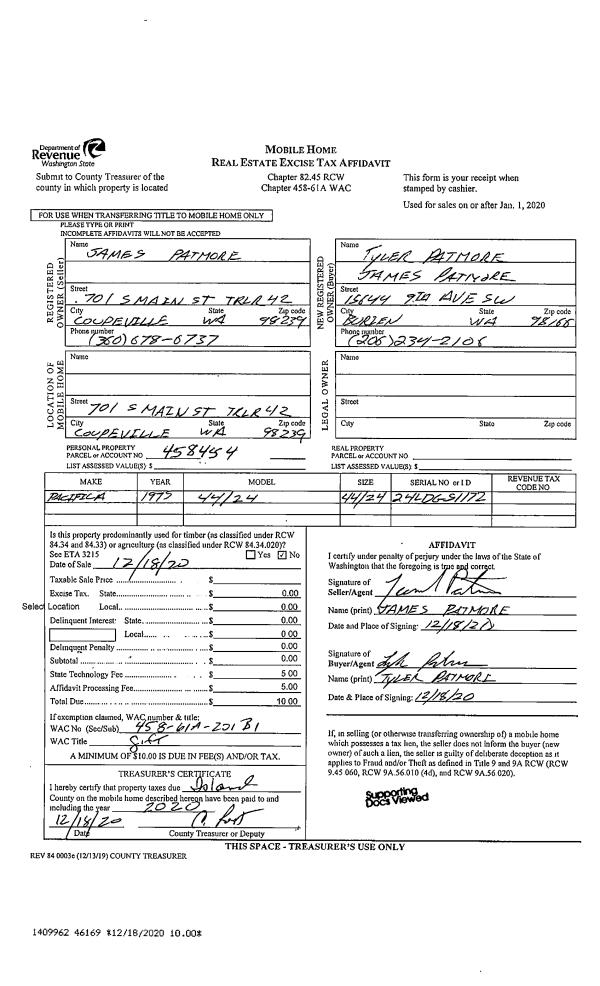 Department of
Revenue
Washington State
Submit to County Treasurer of the
county in which property is located
MOBILE HOME
REAL ESTATE EXCISE TAX AFFIDAVIT
Chapter 82.45 RCW
Chapter 458-61A WAC
This form is your receipt when
stamped by cashier.
Used for sales on or after Jan. 1, 2020
FOR USE WHEN TRANSFERRING TITLE TO MOBILE HOME ONLY
PLEASE TYPE OR PRINT
INCOMPLETE AFFIDAVITS WILL NOT BE ACCEPTED
REGISTERED
OWNER (Seller)
Name
JAMES PATMORE
Street
701 S MAIN ST TRLR 42
City State Zip code
COUPEVILLE WA 98239
Phone number
(360) 678-6737
NEW REGISTERED
OWNER (Buyer)
Name
TYLER PATMORE
JAMES PATMORE
Street
15644 9TH AVE SW
City State Zip code
BURIEN WA 98166
Phone number
(206) 234-2106
LOCATION OF
MOBILE HOME
Name
Street
701 S MAIN ST TRLR 42
City State Zip code
COUPEVILLE WA 98239
LEGAL OWNER
Name
Street
City State Zip code
PERSONAL PROPERTY
PARCEL or ACCOUNT NO 458454
LIST ASSESSED VALUE(S) $
REAL PROPERTY
PARCEL or ACCOUNT NO
LIST ASSESSED VALUE(S) $
MAKE YEAR MODEL SIZE SERIAL NO or I D REVENUE TAX CODE NO
1977 44/24 44/24 24LDGS1172
Is this property predominantly used for timber (as classified under RCW
84.34 and 84.33) or agriculture (as classified under RCW 84.34.020)?
See ETA 3215 Yes ☑ No
Date of Sale 12/18/20
Taxable Sale Price $
Excise Tax. State $ 0.00
Select Location Local $ 0.00
Delinquent Interest: State $ 0.00
Local $ 0 00
Delinquent Penalty $ 0.00
Subtotal $ 0.00
State Technology Fee $ 5 00
Affidavit Processing Fee $ 5.00
Total Due $ 10 00
If exemption claimed, WAC number & title:
WAC No (Sec/Sub) 458-61A-201 B1
WAC Title Gift
A MINIMUM OF $10.00 IS DUE IN FEE(S) AND/OR TAX.
TREASURER'S CERTIFICATE
I hereby certify that property taxes due Island
County on the mobile home described hereon have been paid to and
including the year 2020
12/18/20
Date County Treasurer or Deputy
AFFIDAVIT
I certify under penalty of perjury under the laws of the State of
Washington that the foregoing is true and correct.
Signature of
Seller/Agent
Name (print) JAMES PATMORE
Date and Place of Signing: 12/18/20
Signature of
Buyer/Agent
Name (print) TYLER PATMORE
Date & Place of Signing: 12/18/20
If, in selling (or otherwise transferring ownership of) a mobile home
which possesses a tax lien, the seller does not inform the buyer (new
owner) of such a lien, the seller is guilty of deliberate deception as it
applies to Fraud and/or Theft as defined in Title 9 and 9A RCW (RCW
9.45 060, RCW 9A.56.010 (4d), and RCW 9A.56.020).
Supporting
Docs Viewed
THIS SPACE - TREASURER'S USE ONLY
REV 84 0003e (12/13/19) COUNTY TREASURER
1409962 46169 *12/18/2020 10.00*